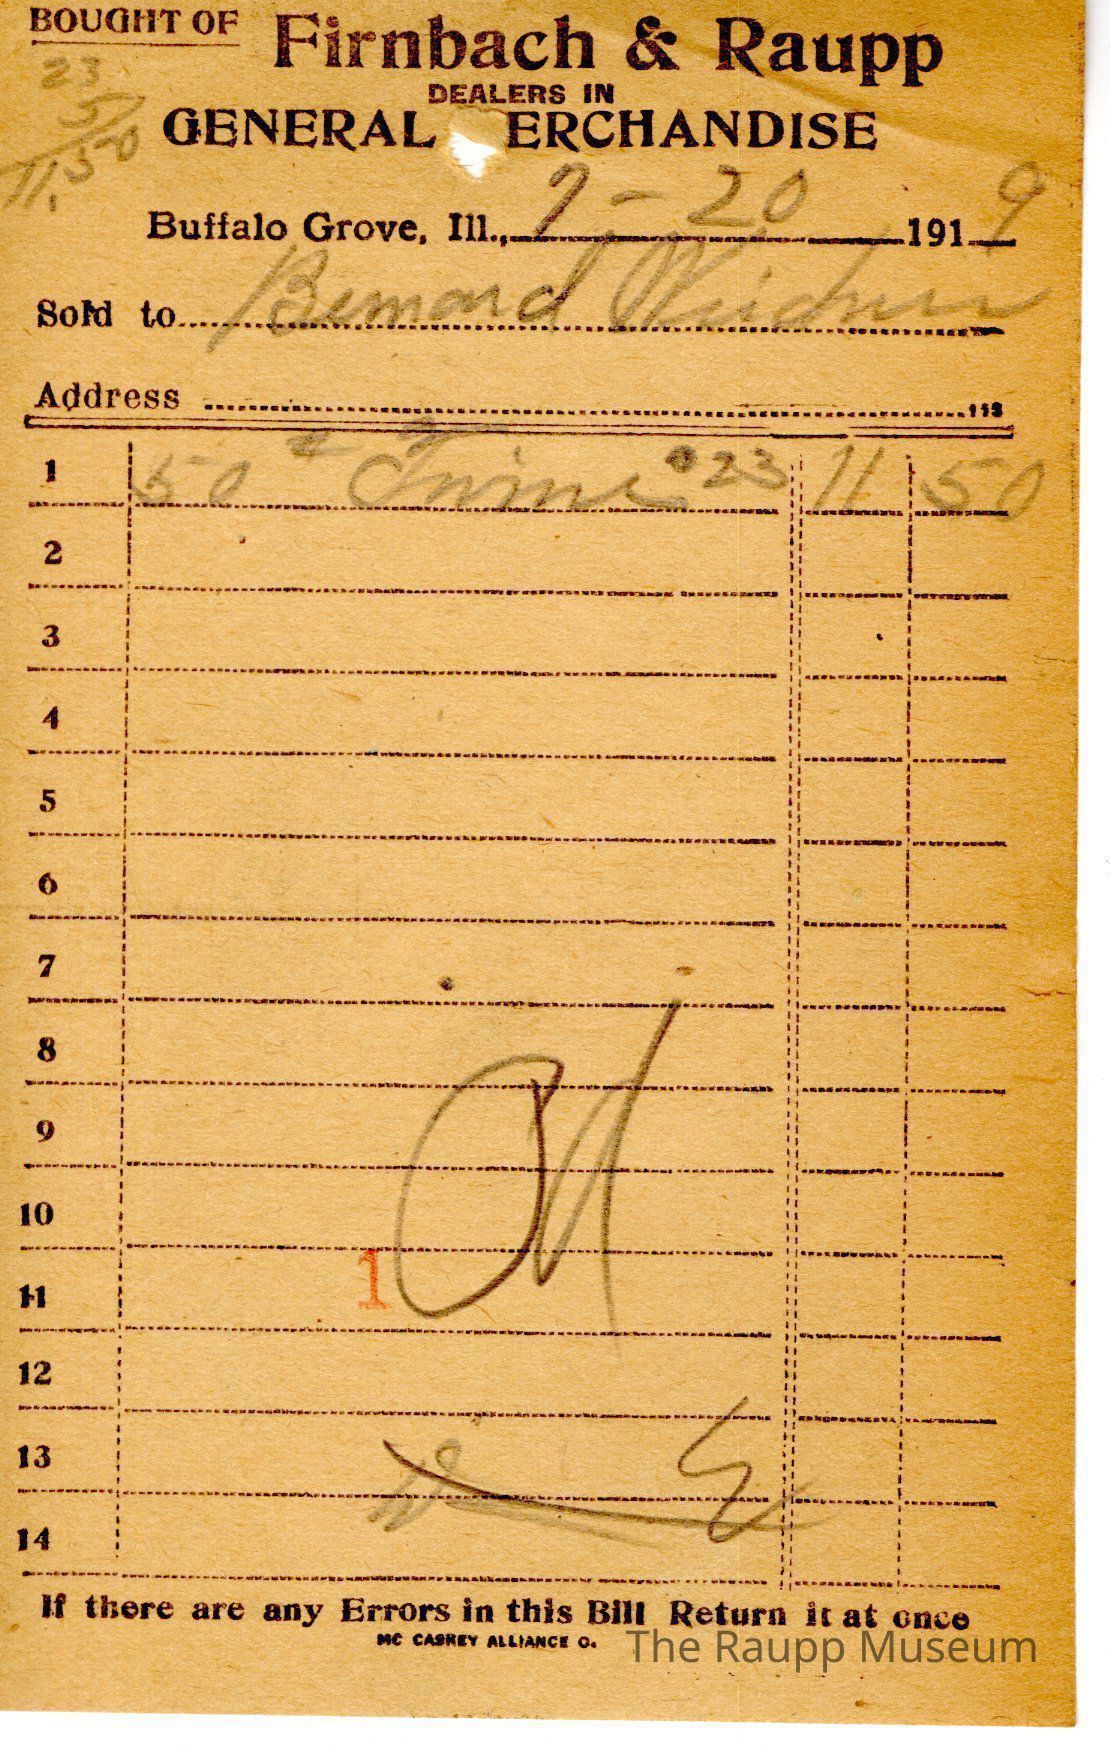 BOUGHT OF Firnbach & Raupp
23
DEALERS IN
5
GENERAL ERCHANDISE
11.50
Buffalo Grove, Ill., 7-20 1919
Sold to Bernard
Address 113
1 50 # Twine 23 11 50
2
3
4
5
6
7
8
9
10
1
11
12
13
14
If there are any Errors in this Bill Return it at once
MC CASKEY ALLIANCE O.
The Raupp Museum